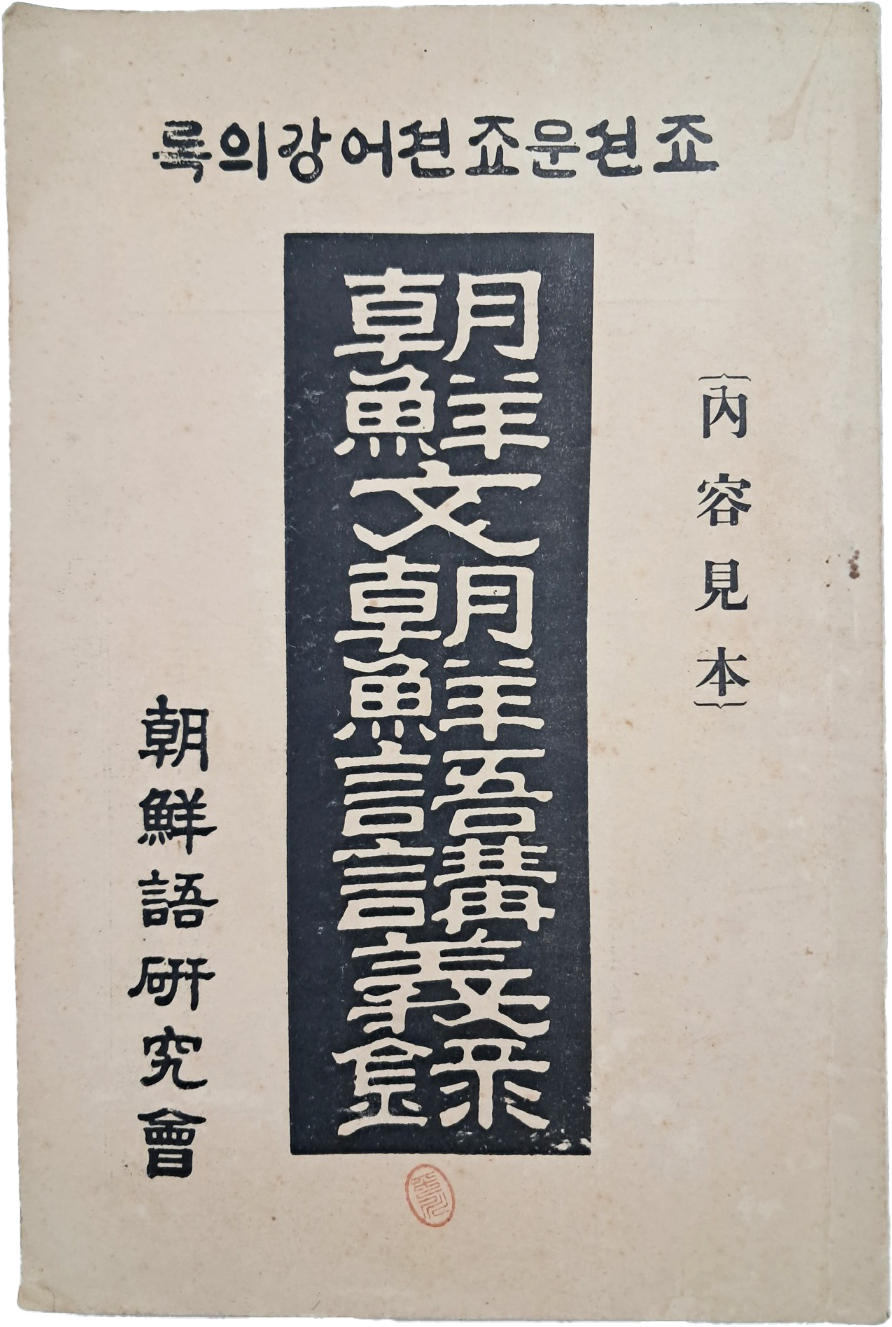 죠션운죠션어강의록
(内容見本)
朝鮮文朝鮮語講義錄
朝鮮語研究會